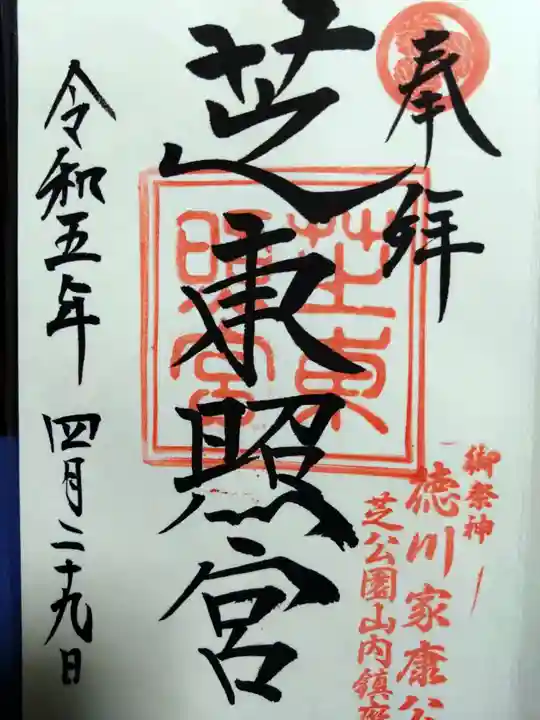 奉拝
御祭神
徳川家康公
芝公園山内鎮座
芝東照宮
芝東
照宮
令和五年 四月二十九日